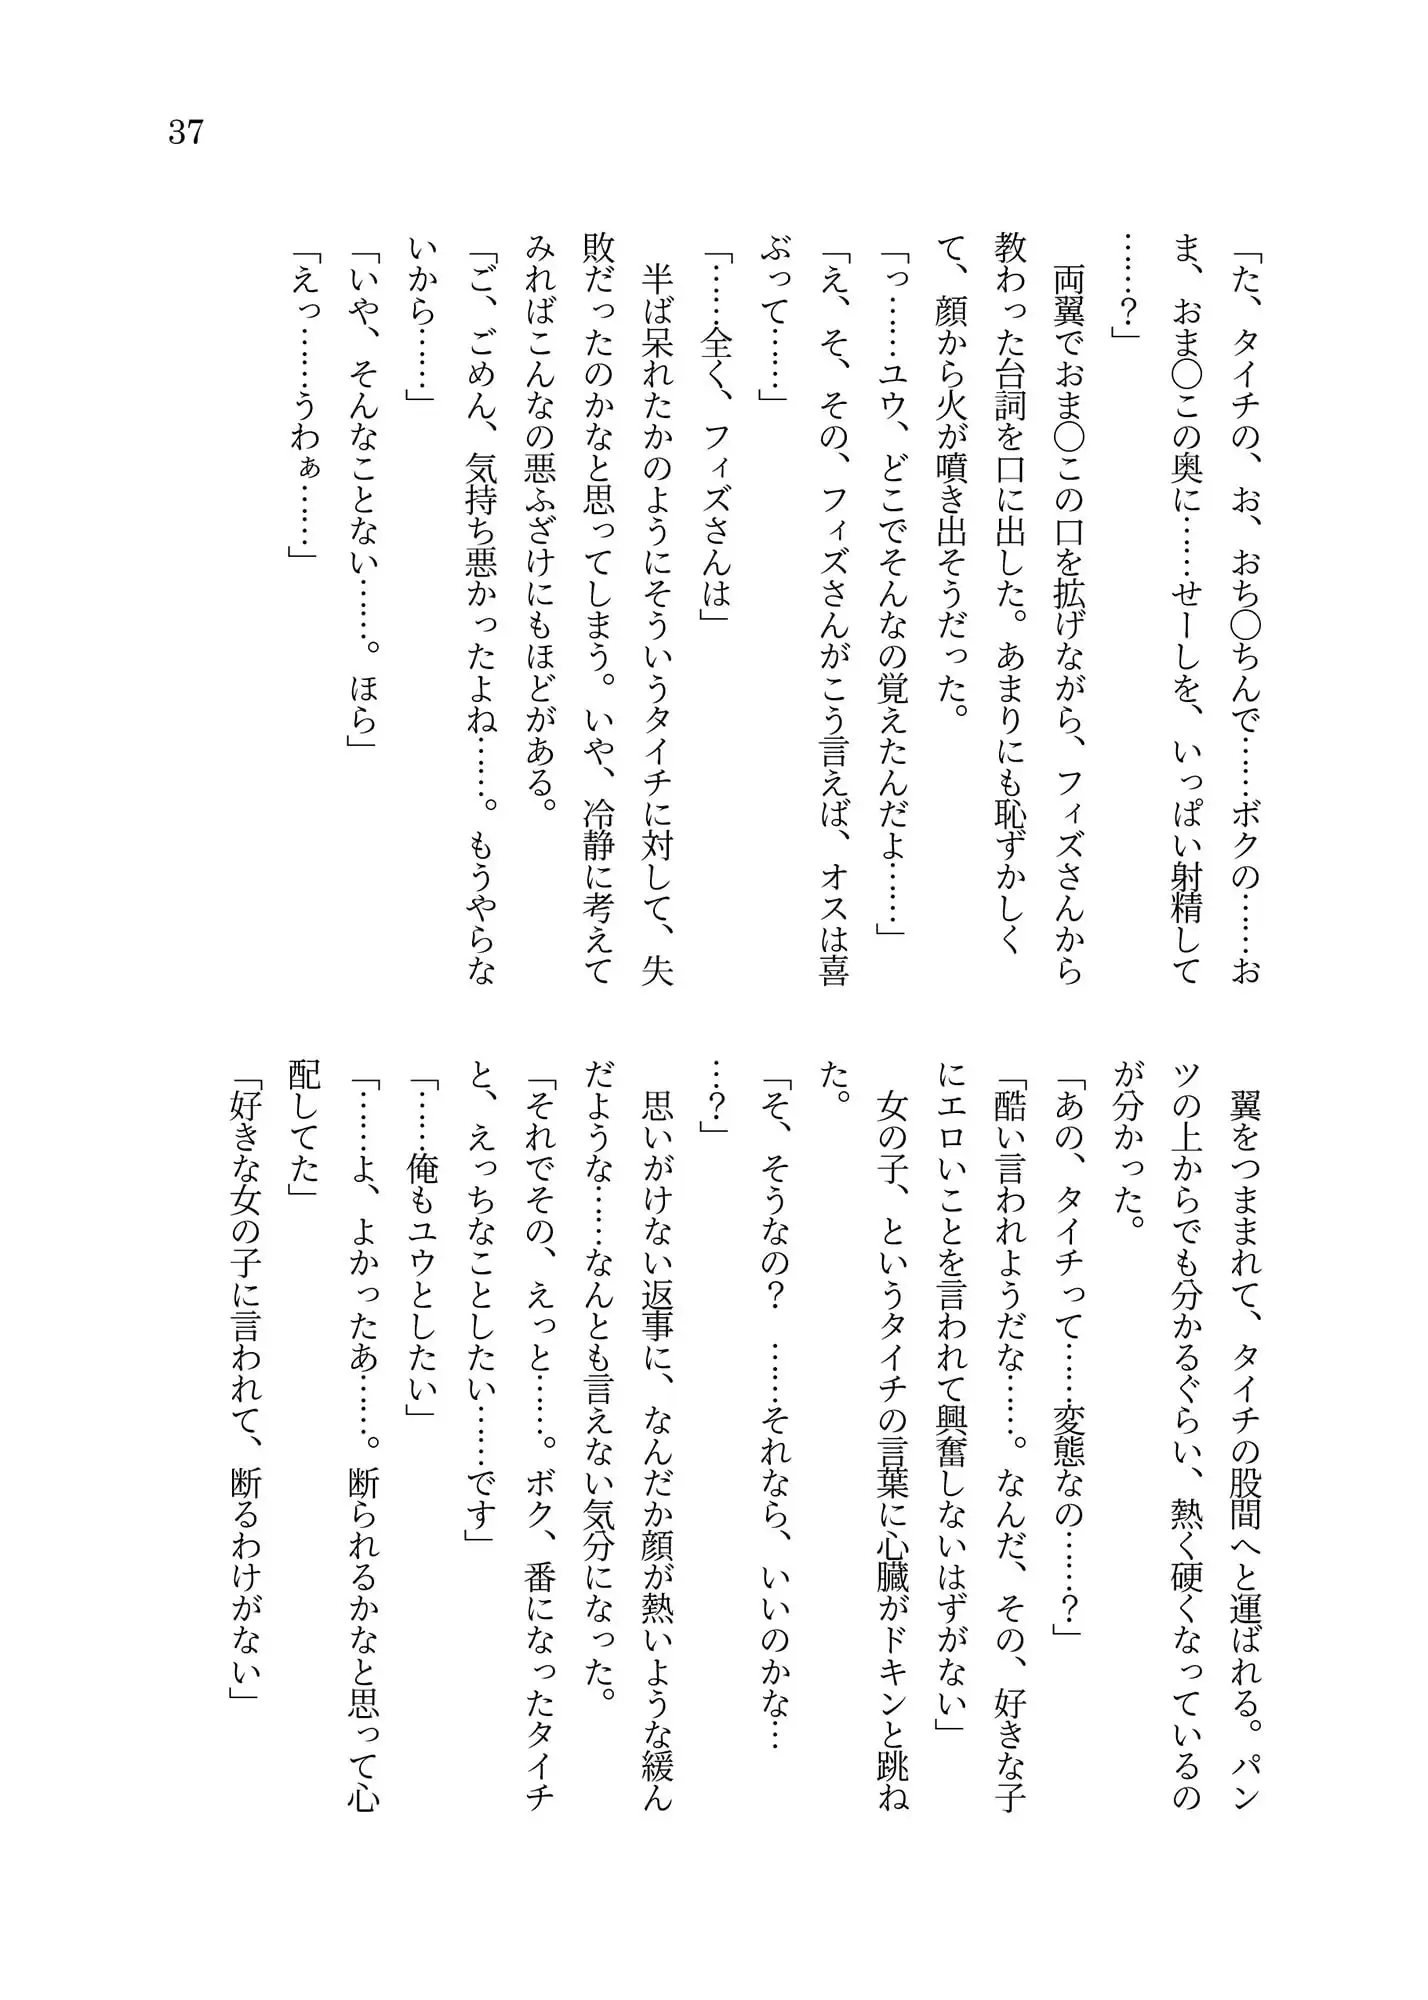 37
「た、タイチの、お、おち〇ちんで……ボクの……お
ま、おま〇この奥に……せーしを、いっぱい射精して
……？」
　両翼でおま〇この口を拡げながら、フィズさんから
教わった台詞を口に出した。あまりにも恥ずかしく
て、顔から火が噴き出そうだった。
「っ……ユウ、どこでそんなの覚えたんだよ……」
「え、そ、その、フィズさんがこう言えば、オスは喜
ぶって……」
「……全く、フィズさんは」
　半ば呆れたかのようにそういうタイチに対して、失
敗だったのかなと思ってしまう。いや、冷静に考えて
みればこんなの悪ふざけにもほどがある。
「ご、ごめん、気持ち悪かったよね……。もうやらな
いから……」
「いや、そんなことない……。ほら」
「えっ……うわぁ……」
　翼をつままれて、タイチの股間へと運ばれる。パン
ツの上からでも分かるぐらい、熱く硬くなっているの
が分かった。
「あの、タイチって……変態なの……？」
「酷い言われようだな……。なんだ、その、好きな子
にエロいことを言われて興奮しないはずがない」
　女の子、というタイチの言葉に心臓がドキンと跳ね
た。
「そ、そうなの？　……それなら、いいのかな…
…？」
　思いがけない返事に、なんだか顔が熱いような緩ん
だような……なんとも言えない気分になった。
「それでその、えっと……。ボク、番になったタイチ
と、えっちなことしたい……です」
「……俺もユウとしたい」
「……よ、よかったあ……。断られるかなと思って心
配してた」
「好きな女の子に言われて、断るわけがない」